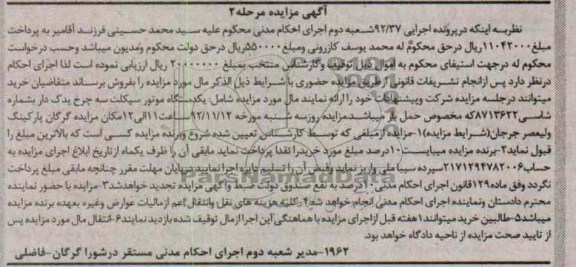 آگهی مزایده مرحله۲
نظربه اینکه درپرونده اجرایی ۹۲/۳۷شعبه دوم اجرای احکام مدنی محکوم علیه سید محمد حسینی فرزند آقامیر به پرداخت
مبلغ۱۱۰۴۲۰۰۰ریال درحق محکوم له محمد یوسف کازرونی ومبلغ۵۵۰۰۰۰ریال درحق دولت محکوم ومدیون میباشد وحسب درخواست
محکوم له درجهت استیفای محکوم به اموال ذیل توقیف وکارشناس منتخب بمبلغ ۲۰۰۰۰۰۰۰ ریال ارزیابی نموده است لذا اجرای احکام
درنظر دارد پس ازانجام تشریفات قانونی ازطریق مزایده حضوری با شرایط ذیل الذکر مال مورد مزایده را بفروش برساند متقاضیان خرید
میتوانند درجلسه مزایده شرکت وپیشنهادات خود را ارائه نمایند مال مورد مزایده شامل: یکدستگاه موتور سیکلت سه چرخ یدک دار بشماره
شاسی۸۷۱۳۶۲۲که مخصوص حمل بار میباشد.مزایده روزسه شنبه مورخه ۹۲/۱۱/۱۲ساعت۱۱الی۱۲مکان مزایده گرگان پارکینگ
ولیعصر جرجان(شرایط مزایده)۱-مزایده ازمبلغی که توسط کارشناس تعیین شده شروع وبرنده مزایده کسی است که بالاترین مبلغ را
قبول نماید۲-برنده مزایده میبایست۱۰درصد مبلغ مورد خریدرا نقدا پرداخت نماید مابقی آن را ظرف یکماه ازتاریخ ابلاغ اجرای مزایده به
حساب۲۱۷۱۲۹۴۷۸۲۰۰۶سپرده سیبا ملی واریز نماید وفیش آن را تسلیم دایره اجرا نماید درپایان مهلت مقرر چنانچه مابقی مبلغ پرداخت
نگردد وفق ماده۱۲۹قانون اجرای احکام مدنی۱۰درصد به نفع صندوق دولت ضبط وآگهی مزایده تجدید خواهدشد۳-مزایده با حضور نماینده
محترم دادستان ونماینده اجرای احکام مدنی انجام خواهد شد۴-کلیه هزینه های نقل وانتقال اعم ازمالیات عوارض وغیره بعهده برنده مزایده
میباشد۵-طالبین خرید میتوانند۱هفته قبل ازاجرای مزایده با هماهنگی این اجرا ازمال توقیف شده بازدید نمایند۶-انتقال مال مورد مزایده پس
از تایید صحت مزایده از ناحیه دادگاه خواهد بود.
۱۹۶۲-مدیر شعبه دوم اجرای احکام مدنی مستقر درشورا گرگان-فاضلی